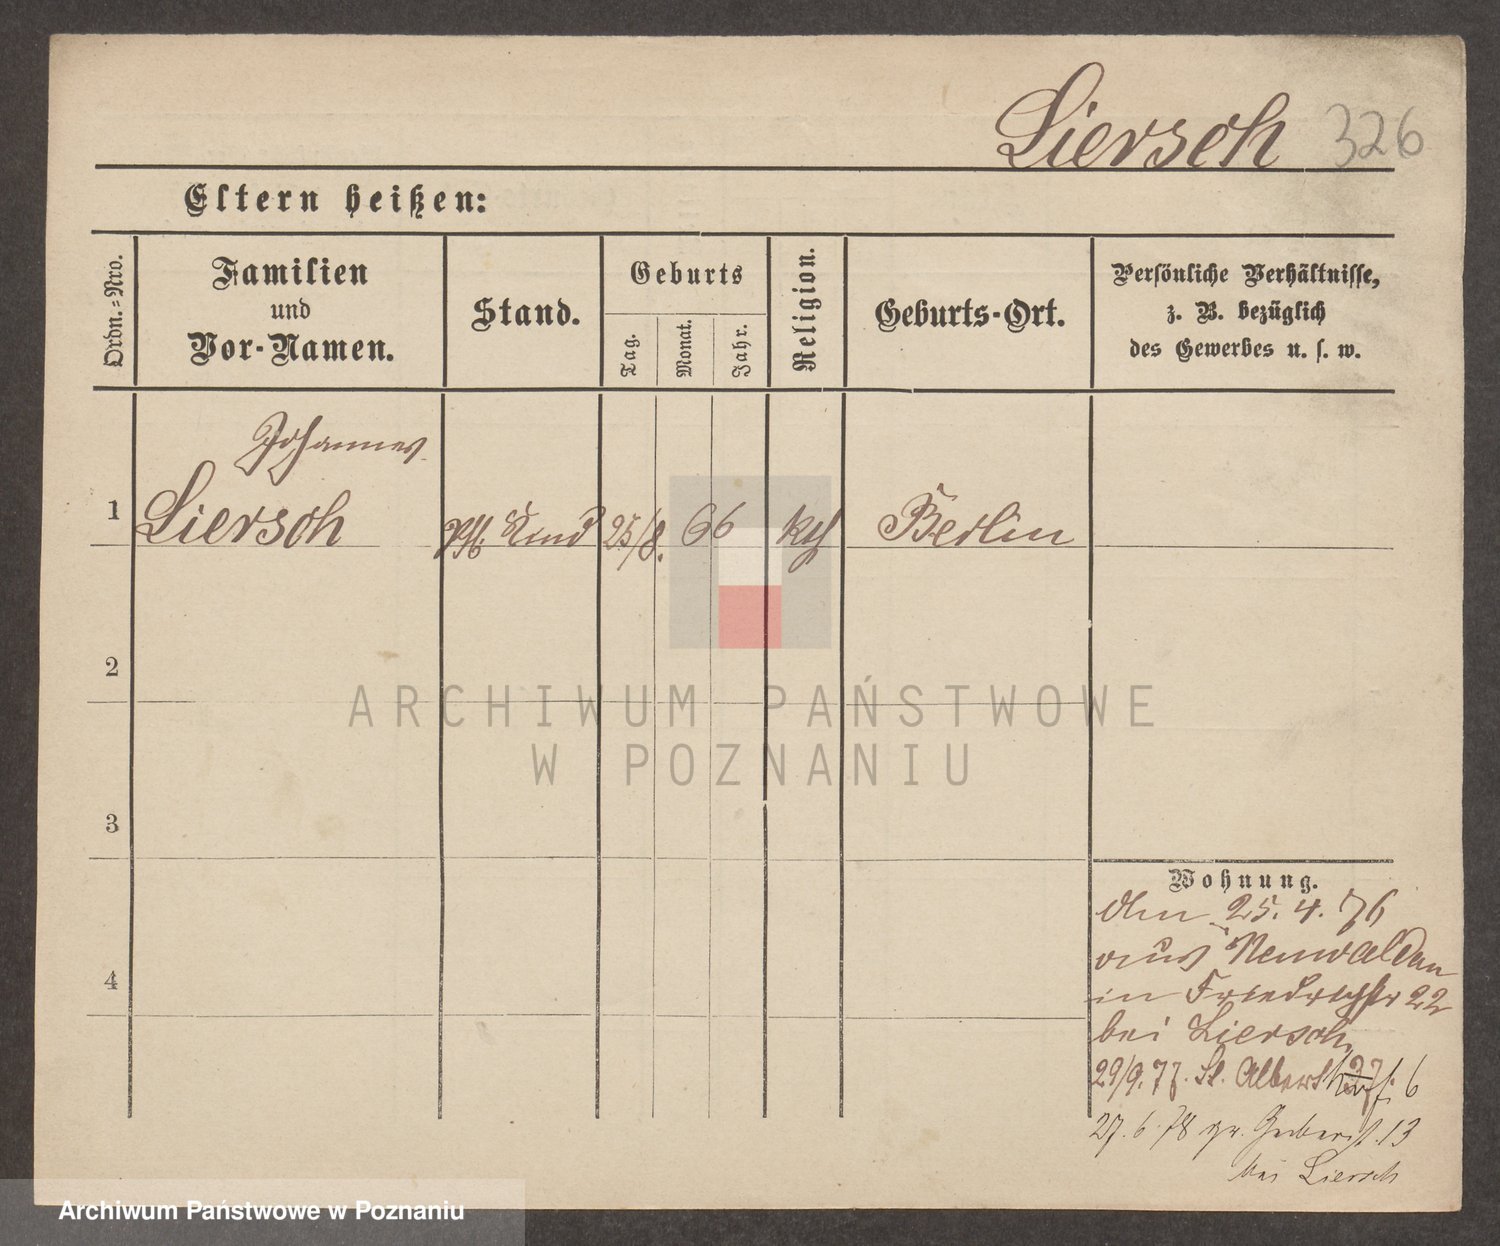 Liersch 326
Eltern heißen:
Ordn.=Nro.
Familien
und
Vor-Namen.
Stand.
Geburts
Tag.
Monat.
Jahr.
Religion.
Geburts-Ort.
Persönliche Verhältnisse,
z. B. bezüglich
des Gewerbes u. s. w.
Johannes
1 Liersch Pfl. Kind 25/8. 66 kth Berlin
2
ARCHIWUM PAŃSTWOWE
W POZNANIU
3
Wohnung.
den 25. 4. 76
aus Neuwaldau
4
in Friedrichstr 22
bei Liersch
29/9. 77. St. Albert 6
27. 6. 78 gr. Gerberst. 13
bei Liersch
Archiwum Państwowe w Poznaniu